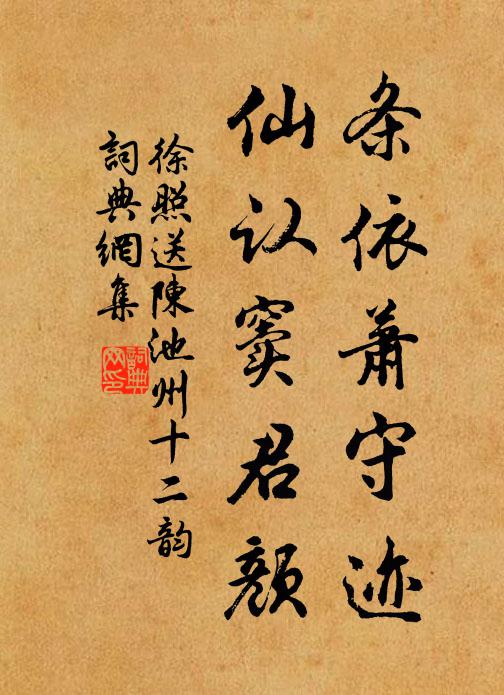 条依萧守迹
仙认窦君颜
徐照送陳池州十二韵
詞典網集
詞典網印